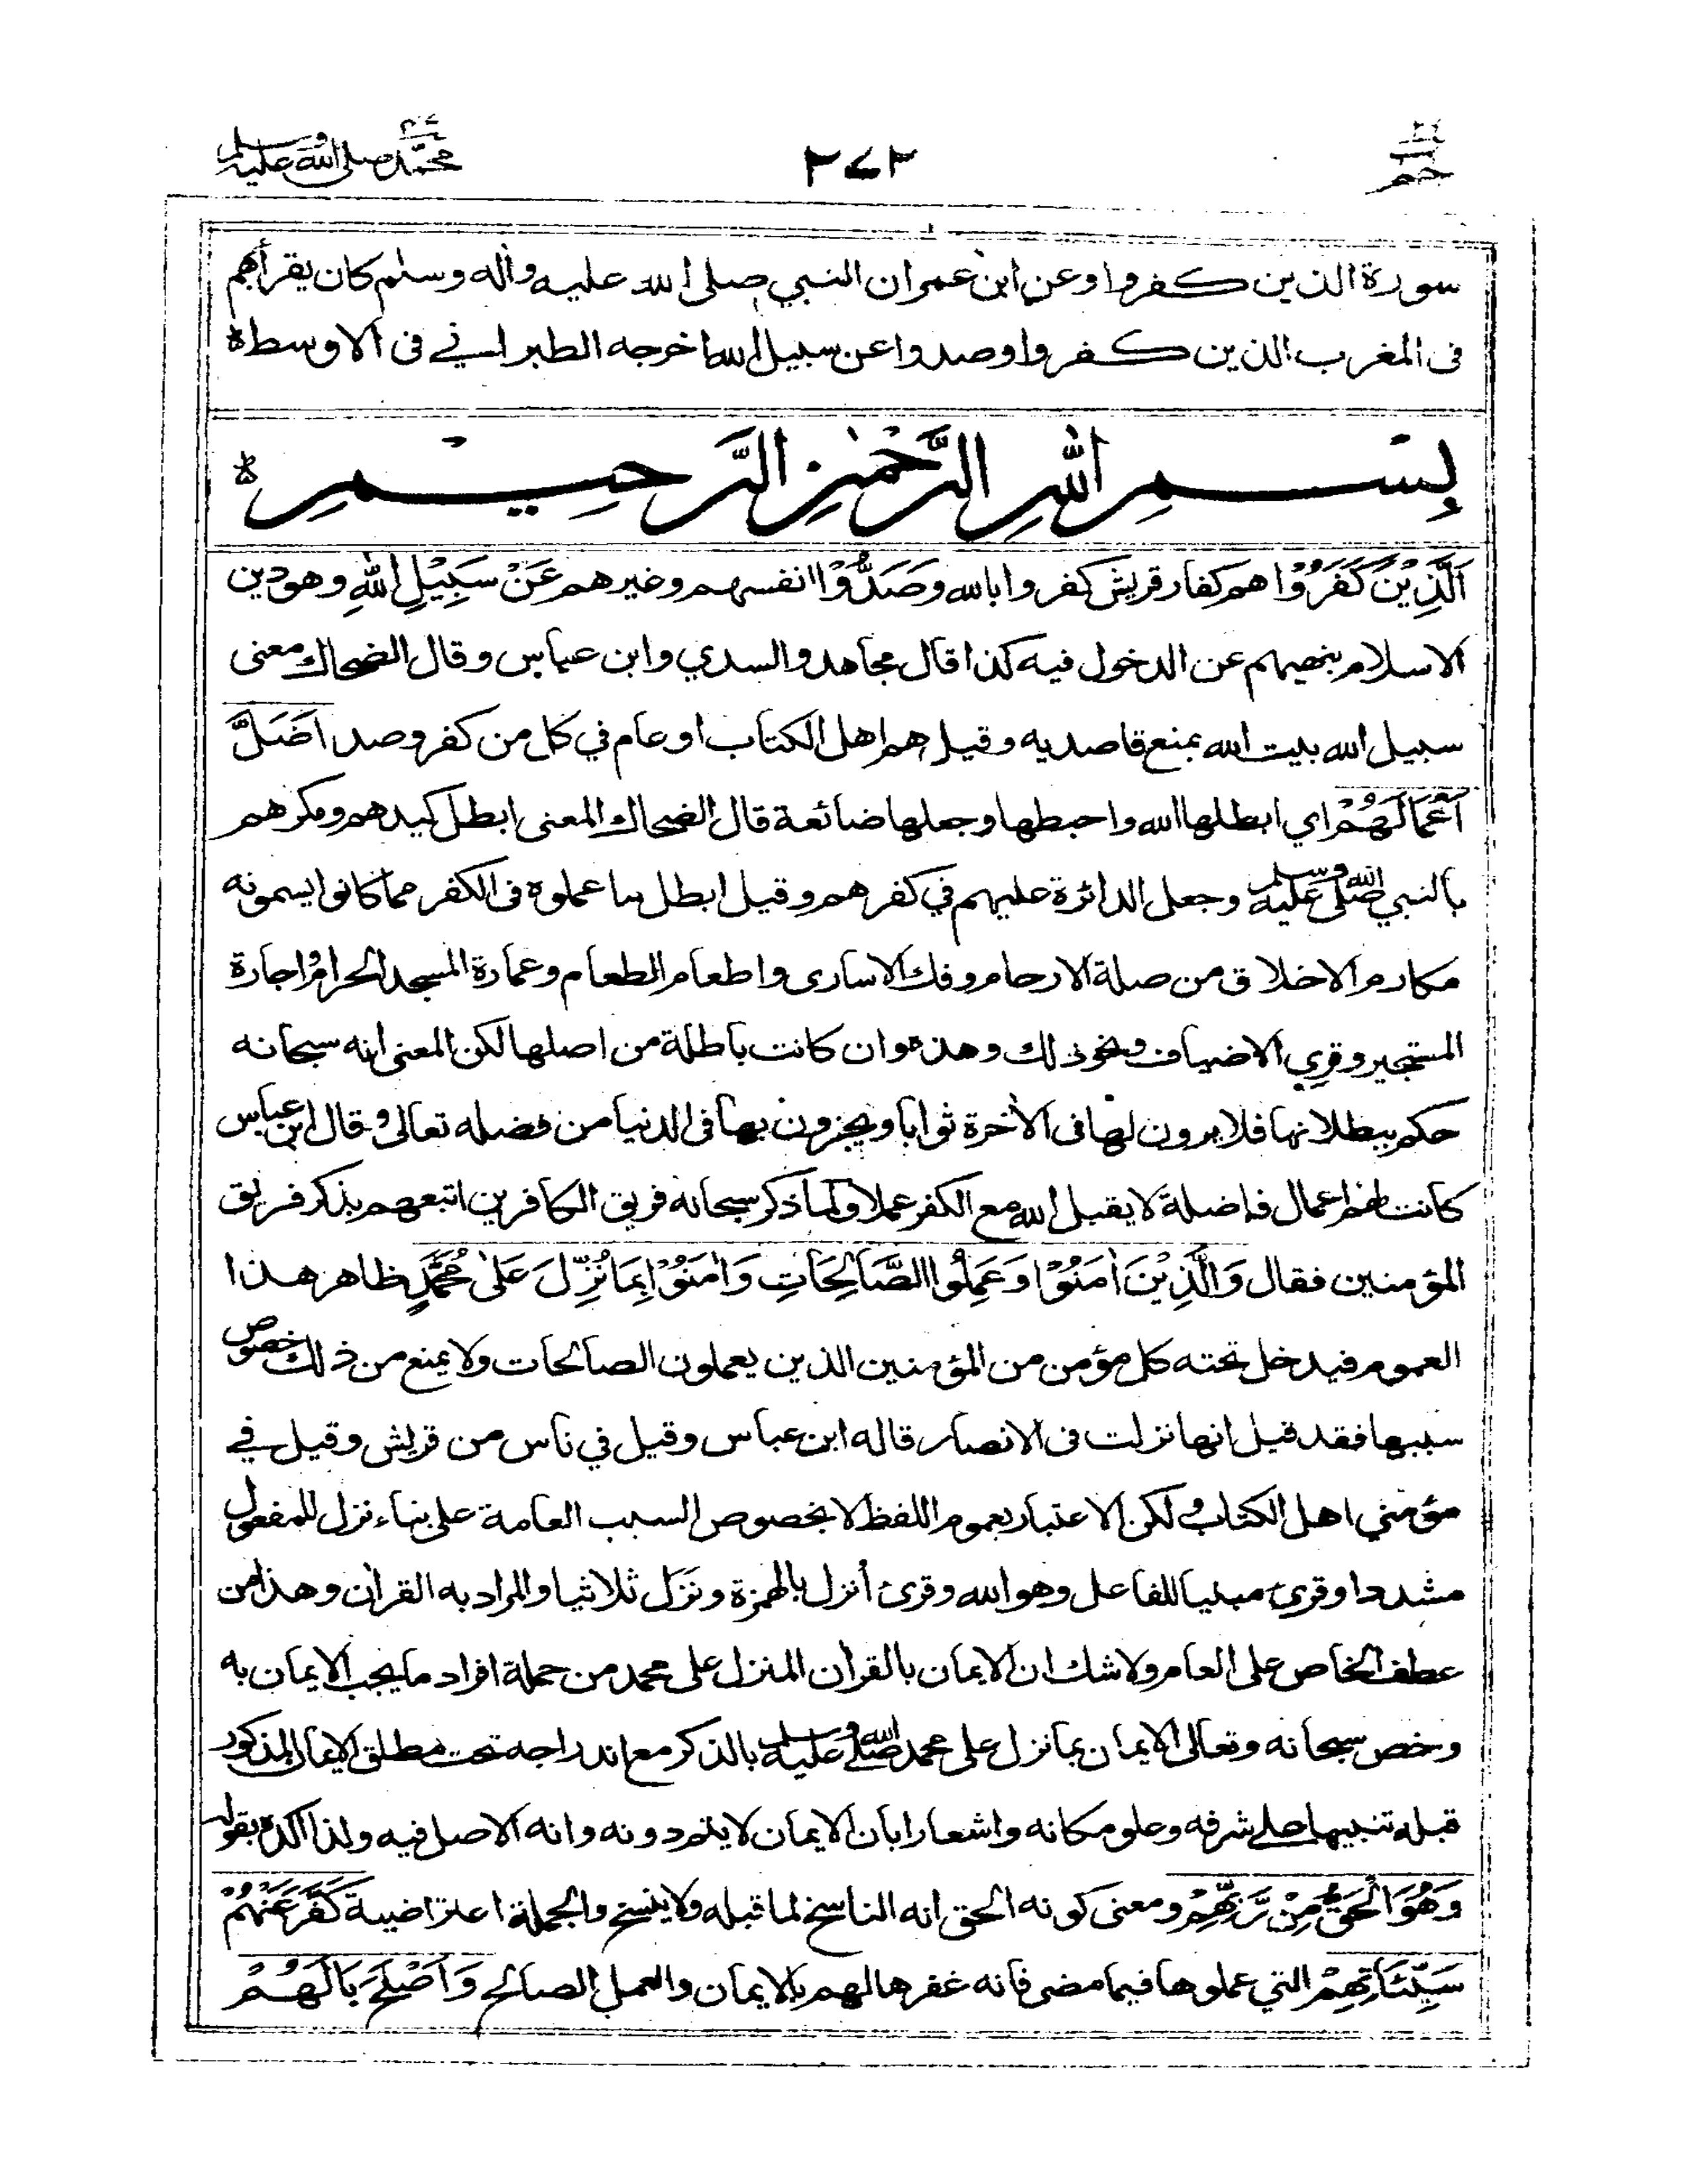 حم ٢٦
٢٧٢
محمد صلى الله عليه وسلم ٤٧
سورة الذين كفروا وعن ابن عمر ان النبي صلى الله عليه واله وسلم كان يقرأهم
فى المغرب الذين كفروا وصدوا عن سبيل الله اخرجه الطبراني في الاوسط ه
بِسْمِ اللهِ الرَّحْمٰنِ الرَّحِيْمِ ه
اَلَّذِيْنَ كَفَرُوْا هم كفار قريش كفروا بالله وَصَدُّوْا انفسهم وغيرهم عَنْ سَبِيْلِ اللهِ وهو دين
الاسلام بنهيهم عن الدخول فيه كذا قال مجاهد والسدي وابن عباس وقال الضحاك معنى
سبيل الله بيت الله بمنع قاصديه وقيل هم اهل الكتاب او عام في كل من كفر وصد اَضَلَّ
اَعْمَالَهُمْ اي ابطلها الله واحبطها وجعلها ضائعة قال الضحاك والمعنى ابطل كيدهم ومكرهم
بالنبي صلى الله عليه وسلم وجعل الدائرة عليهم في كفرهم وقيل ابطل ما عملوه فى الكفر مما كانوا يسمونه
مكارم الاخلاق من صلة الارحام وفك الاسارى واطعام الطعام وعمارة المسجد الحرام واجارة
المستجير وقري الاضياف ونحو ذلك وهذه وان كانت باطلة من اصلها لكن المعنى انه سبحانه
حكم ببطلانها فلا يرون لها فى الآخرة ثوابا ويجزون بها فى الدنيا من فضله تعالى وقال ابن عباس
كانت لهم اعمال فاضلة لا يقبل الله مع الكفر عملا ولما ذكر سبحانه فريق الكافرين اتبعهم بذكر فريق
المؤمنين فقال وَالَّذِيْنَ اٰمَنُوْا وَعَمِلُوا الصَّالِحَاتِ وَاٰمَنُوْا بِمَا نُزِّلَ عَلٰى مُحَمَّدٍ ظاهر هذا
العموم فيدخل تحته كل مؤمن من المؤمنين الذين يعملون الصالحات ولا يمنع من ذلك خصوص
سببها فقد قيل انها نزلت فى الانصار قاله ابن عباس وقيل في ناس من قريش وقيل في
مؤمني اهل الكتاب ولكن الاعتبار بعموم اللفظ لا بخصوص السبب العامة على بناء نزل للمفعول
مشددا وقرئ مبنيا للفاعل وهو الله وقرئ أنزل بالهمزة ونَزَلَ ثلاثيا والمراد به القران وهذا من
عطف الخاص على العام ولا شك ان الايمان بالقران المنزل على محمد من جملة افراد ما يجب الايمان به
وخص سبحانه وتعالى الايمان بما نزل على محمد صلى الله عليه وسلم بالذكر مع اندراجه تحت مطلق الايمان المذكور
قبله تنبيها على شرفه وعلو مكانه واشعارا بان الايمان لا يتم دونه وانه الاصل فيه ولذا اكده بقوله
وَهُوَ الْحَقُّ مِنْ رَّبِّهِمْ ومعنى كونه الحق انه الناسخ لما قبله ولا ينسخ والجملة اعتراضية كَفَّرَ عَنْهُمْ
سَيِّئَاتِهِمْ التي عملوها فيما مضى فانه غفرها لهم بالايمان والعمل الصالح وَاَصْلَحَ بَالَهُمْ